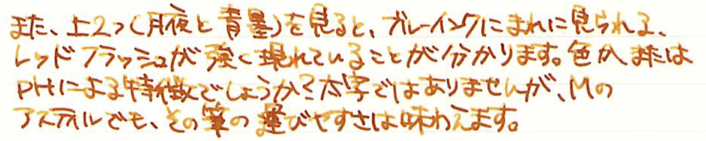 また、上2つ(月夜と青墨)を見ると、ブルーインクにまれに見られる、
レッドフラッシュが強く現れていることが分かります。色かまたは
PHによる特徴でしょうか?太字ではありませんが、Mの
アステルでも、その筆の運びやすさは味わえます。